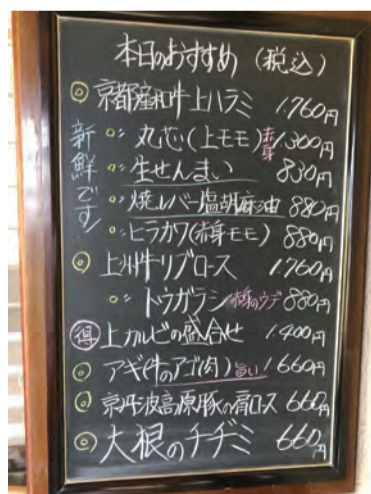 本日のおすすめ (税込)
◎京都産和牛上ハラミ 1.760円
新鮮です!
○〃 丸芯(上モモ)赤身 1.300円
○〃 生せんまい 830円
○〃 焼レバー塩胡麻油 880円
○〃 ヒラカワ(赤身モモ) 880円
◎上州牛リブロース 1.760円
○〃 トウガラシ 赤身のウデ 880円
得 上カルビの盛合せ 1.400円
◎アギ(牛のアゴ肉)旨い! 660円
◎京丹波高原豚の肩ロース 660円
◎大根のチヂミ 660円